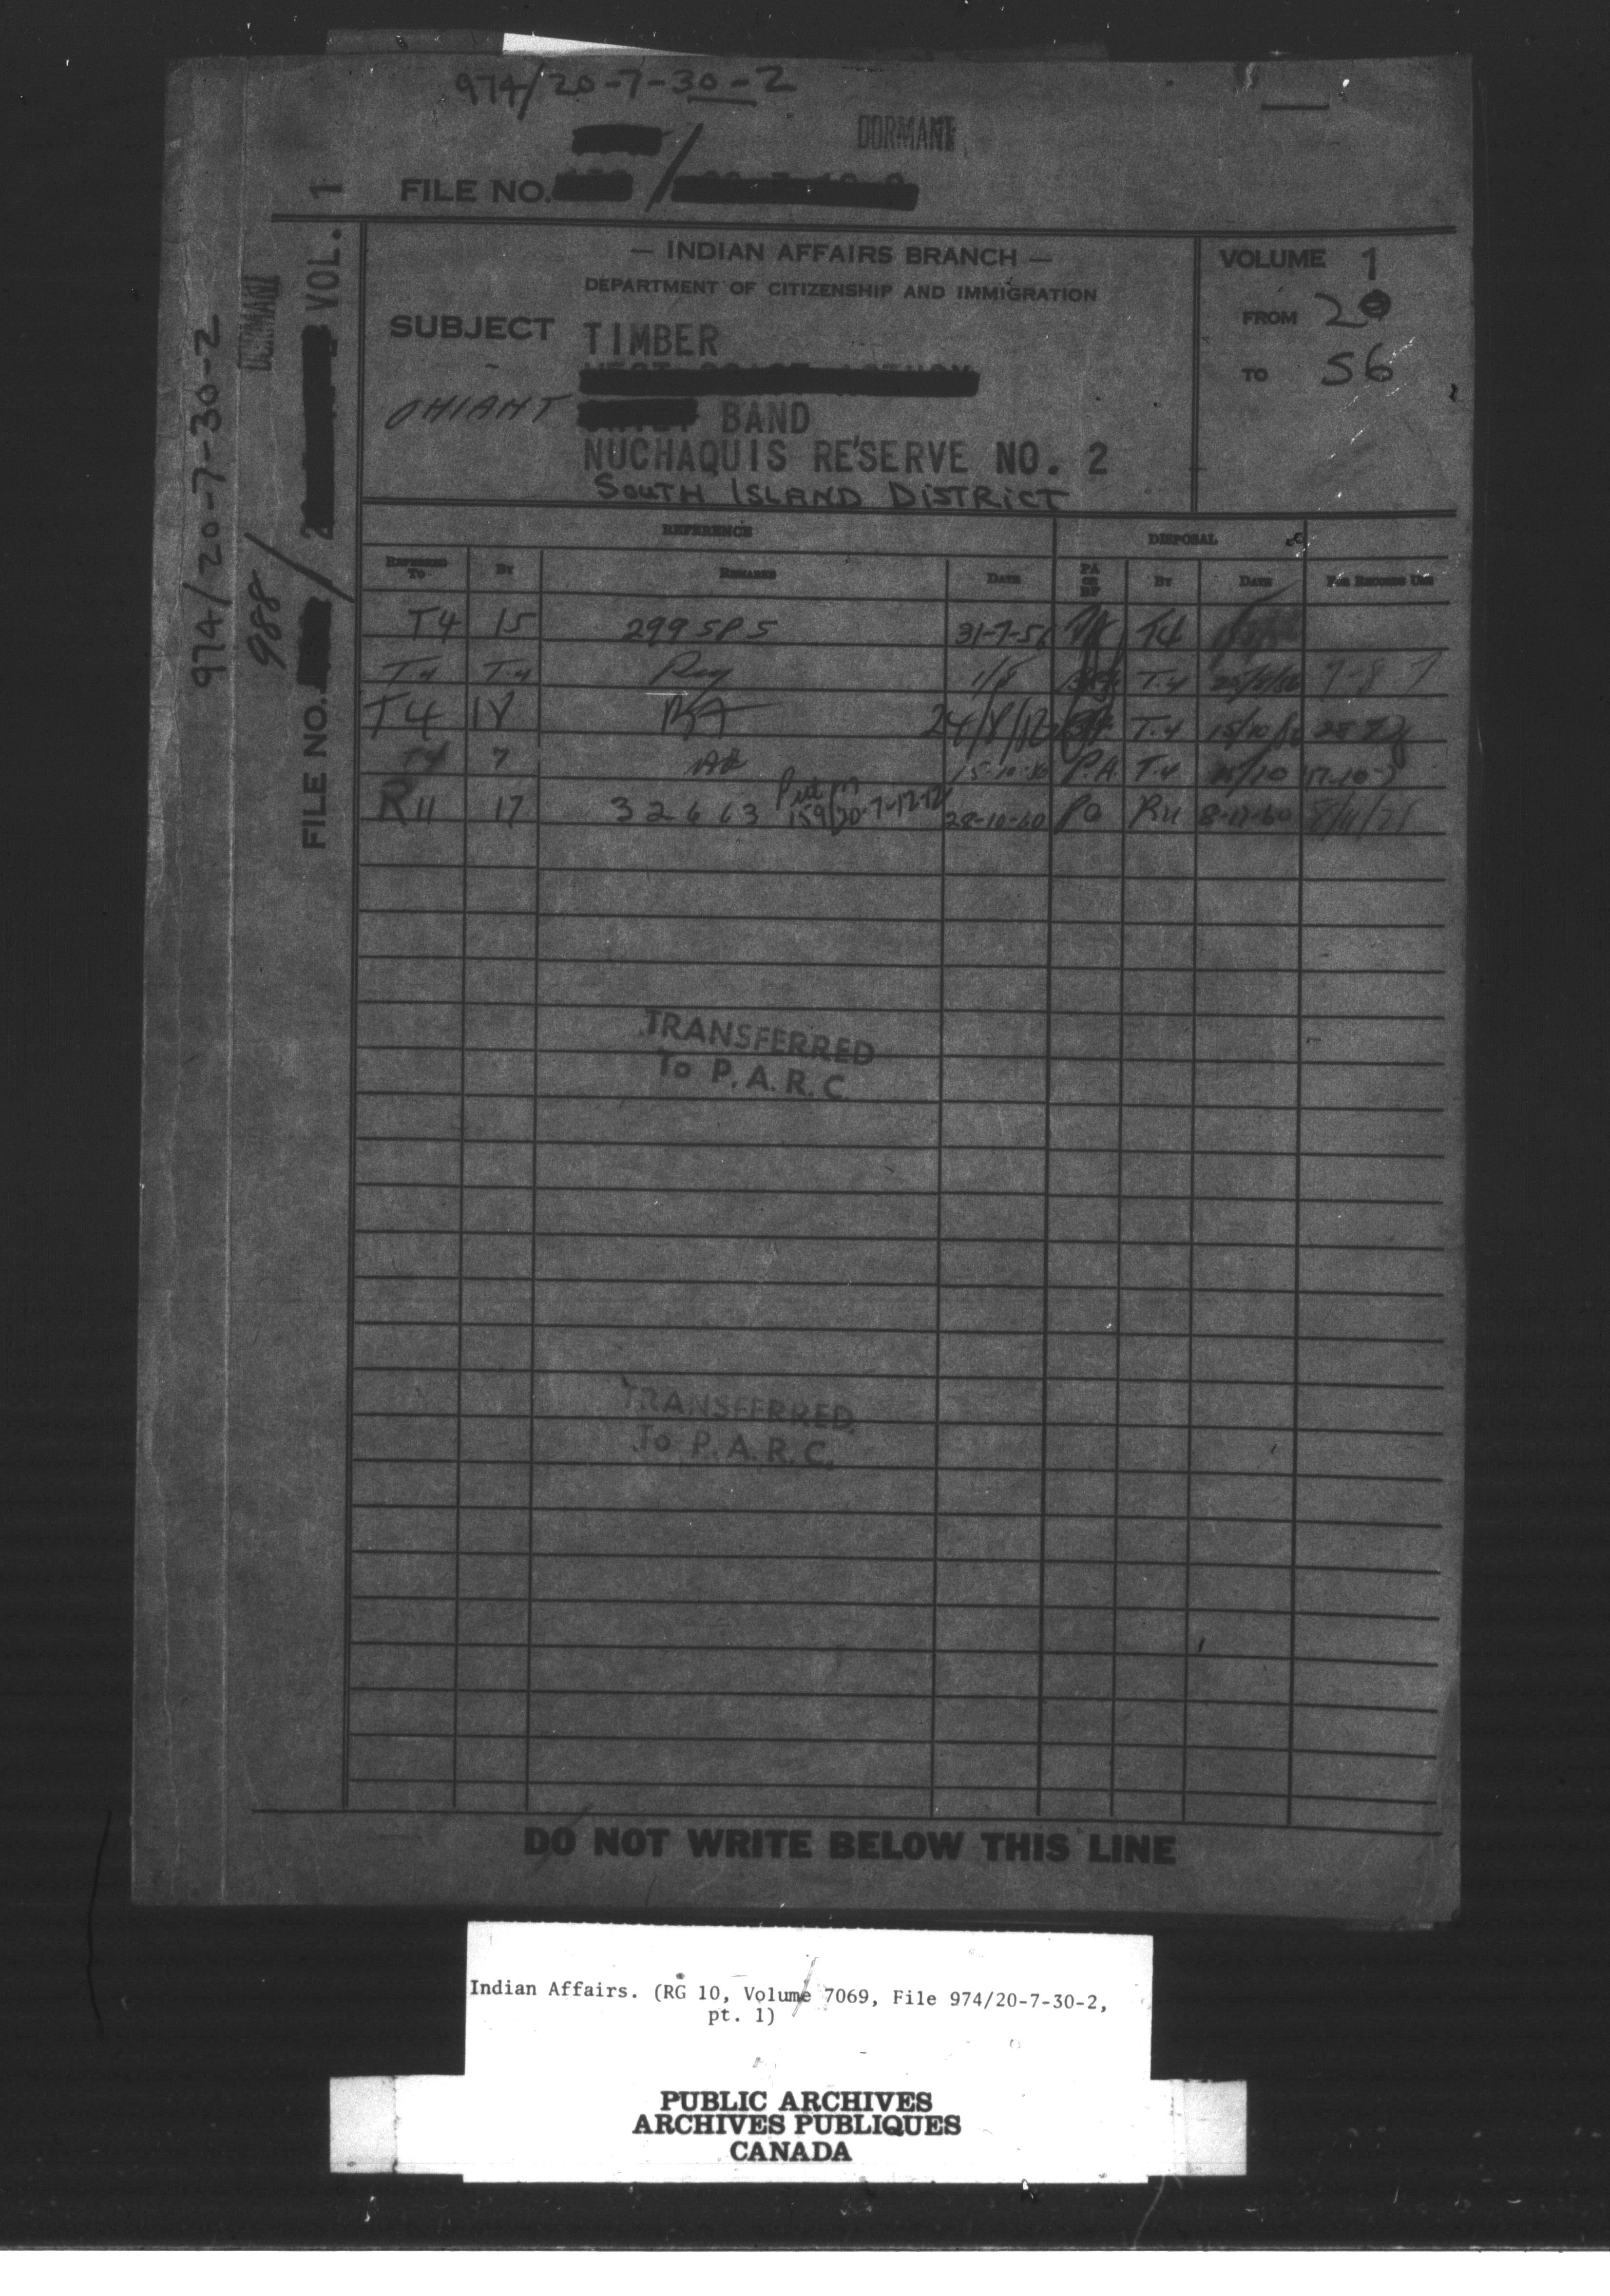 974/20-7-30-2
DORMANT
FILE NO. /
— INDIAN AFFAIRS BRANCH —
DEPARTMENT OF CITIZENSHIP AND IMMIGRATION
SUBJECT TIMBER
OHIAHT BAND
NUCHAQUIS RESERVE NO. 2
SOUTH ISLAND DISTRICT
VOLUME 1
FROM 20
TO 56
FILE NO. 988/ VOL. 1
974/20-7-30-2
DORMANT
REFERENCE DISPOSAL
REFERRED TO BY REMARKS DATE PA OR BF BY DATE FOR RECORDS USE
T4 15 299585 31-7-56 T4
T.4 T.4 1/8 T.4
T4 18 T.4
T4 7 15-10-56 P.A. T.4 25/10
R11 17 32663 159/20-7-12-12 28-10-60 PA R11 8-11-60
TRANSFERRED
To P.A.R.C.
TRANSFERRED
To P.A.R.C.
DO NOT WRITE BELOW THIS LINE
Indian Affairs. (RG 10, Volume 7069, File 974/20-7-30-2,
pt. 1)
PUBLIC ARCHIVES
ARCHIVES PUBLIQUES
CANADA